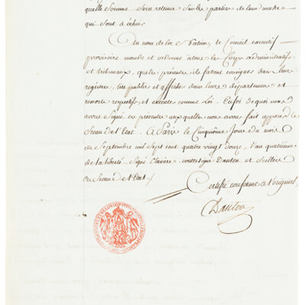 quelle Somme Sera retenue Sur les parties de leur
qui Sont à échoir
Au nom de la Nation, le Conseil exécutif
provisoire mande et ordonne à tous les Corps Administratifs
et tribunaux, que les présentes ils fassent consigner dans leurs
registres, lire publier et afficher dans leurs départemens et
ressorts respectifs, et exécuter comme Loi. En foi de quoi nous
avons Signé ces présentes auxquelles nous avons fait apposer le
Sceau de l'Etat. A Paris le Cinquième Jour du mois
de Septembre mil Sept cent quatre vingt douze l'an quatrième
de la liberté. Signé Clavière contresigné Danton, et Scellées
du Sceau de l'Etat.
Certifié conforme à l'original
Danton